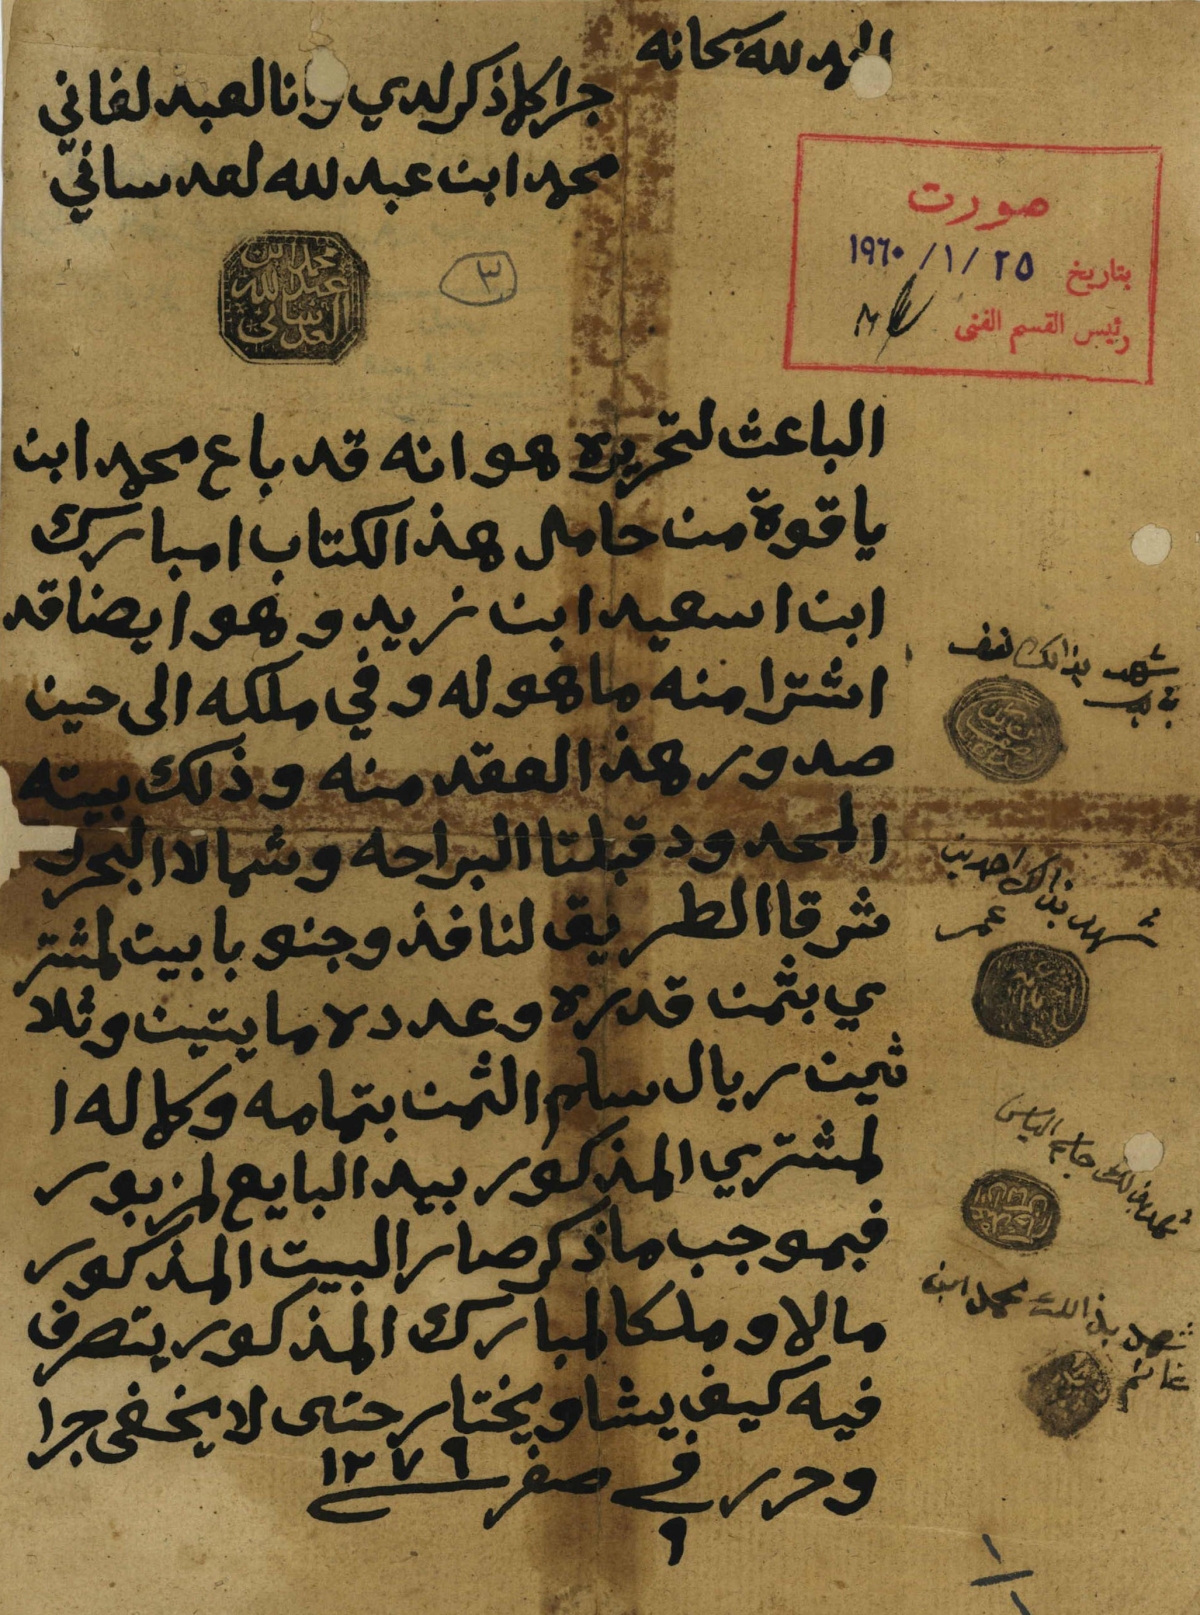 الحمد لله سبحانه
جرا كلما ذكر لدي وانا العبد لفاني
محمد ابن عبد لله لعدساني
محمد ابن
عبد الله
العدساني
٣
صورت
بتاريخ ٢٥ /١ /١٩٦٠
رئيس القسم الفني
الباعث لتحريره هو انه قد باع محمد ابن
ياقوة من حامل هذ الكتاب امبارك
ابن اسعيد ابن زيد وهو ايضا قد
اشترا منه ما هو له وفي ملكه الى حين
صدور هذ العقد منه وذلك بيته
المحدود قبلتا البراحه وشمالا البحر
شرقا الطريق لنافذ وجنوبا بيت لمشتر
ي بثمن قدره وعدده مايتين وثلا
ثين ريال سلم الثمن بتمامه وكماله ا
لمشتري المذكور بيد البايع لمزبور
فبموجب ما ذكر صار البيت المذكور
مالا وملكا لمبارك المذكور يتصرف
فيه كيف يشا ويختار حتى لا يخفى جرا
وحرر في ٩ صفر ١٢٧٩
شهد بذالك
شهد بذالك احمد بن
عمر
شهد بذلك
شهد بذالك محمد ابن
غانم
١
١